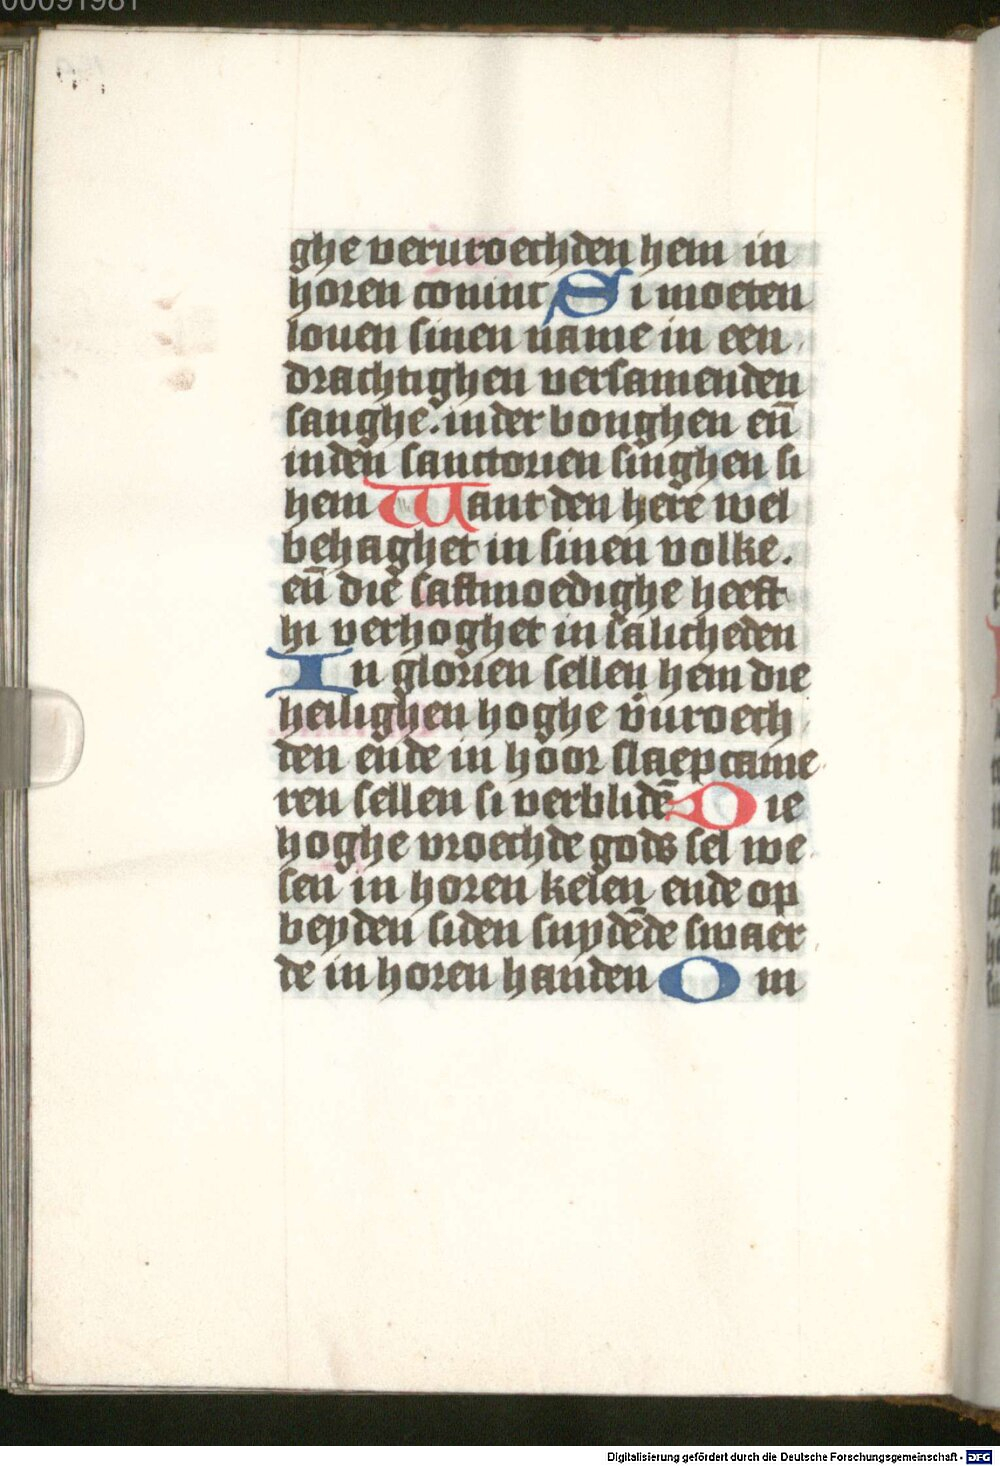 00091981
ghe veruroechden hem in
horen coninc Si moeten
louen sinen name in een
drachtighen versamenden
sanghe. in der bonghen eñ
inden sanctorien singhen si
hem Want den here wel
behaghet in sinen volke.
eñ die saftmoedighe heeft
hi verhoghet in salicheden
In glorien sellen hem die
heilighen hoghe v̄uroech
den ende in hoor slaepcame
ren sellen si verblidē Die
hoghe vroechde gods sel we
sen in horen kelen ende op
beyden siden snydēde swaer
de in horen handen Om
Digitalisierung gefördert durch die Deutsche Forschungsgemeinschaft - DFG